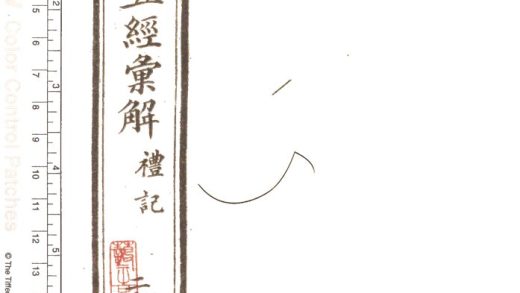 五經彙解 禮記
二
Color Control Patches
© The Tiffe
2
3
4
5
5
6
7
8
9
10
11
12
13